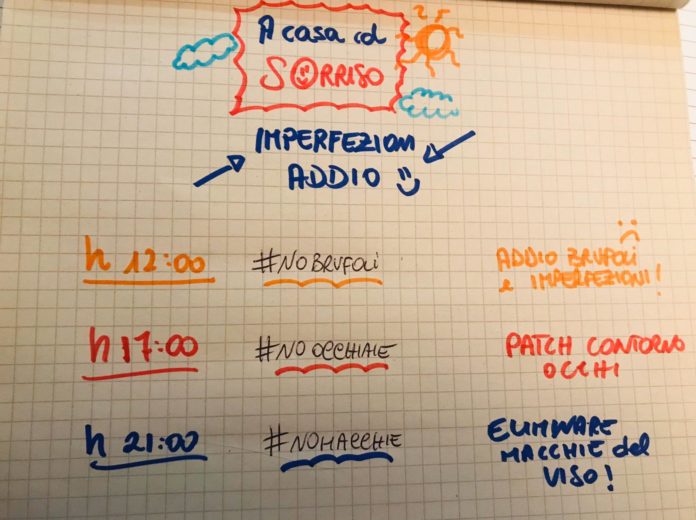 A casa col
SORRISO
IMPERFEZIONI
ADDIO
h 12:00 #NOBRUFOLI ADDIO BRUFOLI
e IMPERFEZIONI!
h 17:00 #NO OCCHIAIE PATCH CONTORNO
OCCHI
h 21:00 #NOMACCHIE ELIMINARE
MACCHIE del
VISO!